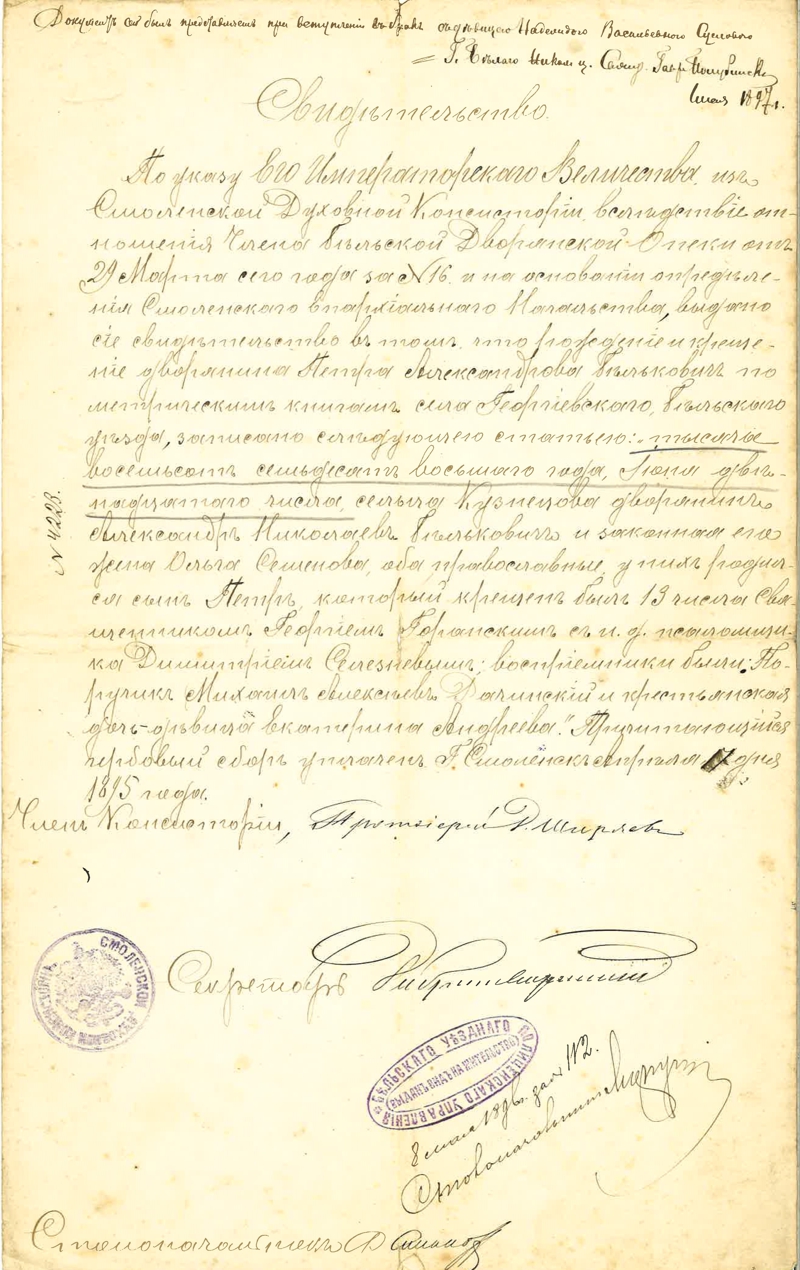 Документъ сей былъ представляемъ при вступленіи въ бракъ съ дѣвицею Надеждою Васильевною
Г. Бѣлаго Никол. ц. Свящ.
1897 г.
Свидѣтельство.
По указу Его Императорскаго Величества, изъ
Смоленской Духовной Консисторіи, вслѣдствіе от-
ношенія Члена Бѣльской Дворянской Опеки отъ
29 Марта сего года за № 16. и на основаніи опредѣле-
нія Смоленскаго Епархіальнаго Начальства, выдано
сіе свидѣтельство въ томъ, что рожденіе и креще-
ніе дворянина Петра Александрова Бѣльковичъ по
метрическимъ книгамъ села Георгіевскаго, Бѣльскаго
уѣзда, записано слѣдующею статьею: „тысяча
восемьсотъ семьдесятъ восьмаго года, Іюня двѣ-
надцатаго числа, сельца Кузнецова дворянинъ
Александръ Николаевъ Бѣльковичъ и законная его
жена Ольга Семенова, оба православные, у нихъ родил-
ся сынъ Петръ, который крещенъ былъ 13 числа Свя-
щенникомъ Георгіемъ Горанскимъ съ и. д. псаломщи-
ка Димитріемъ Селезневымъ; воспріемники были: По-
ручикъ Михаилъ Алексѣевъ Дачинскій и крестьянская
дочь-дѣвица Екатерина Андреева." Причитающійся
гербовый сборъ уплаченъ. Г. Смоленскъ Апрѣля 17 дня
1895 года.
№ 4223.
Членъ Консисторіи, Протоіерей Д. Ширяевъ
Секретарь
СМОЛЕНСКОЙ ДУХОВНОЙ КОНСИСТОРІИ
БѢЛЬСКАГО УѢЗДНАГО ПОЛИЦЕЙСКАГО УПРАВЛЕНІЯ
ВЫДАНЪ ВИДЪ НА ЖИТЕЛЬСТВО
8 мая 1896 г. за № 112.
Столоначальникъ
Столоначальникъ